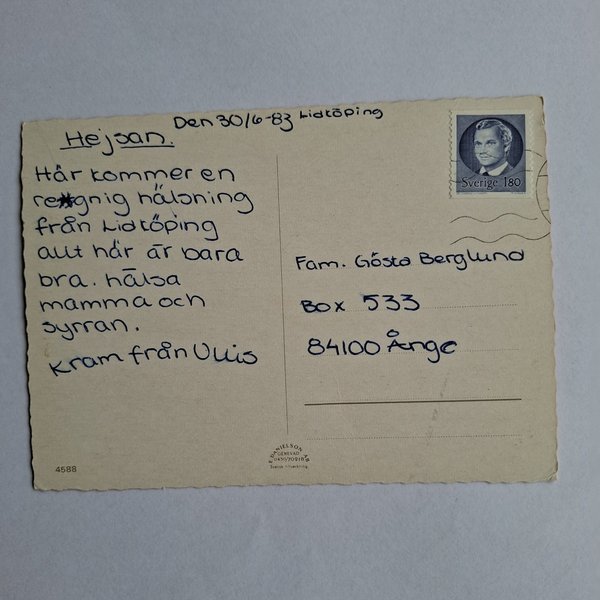 Den 30/6-83 Lidköping
Hejsan.
Här kommer en
regnig hälsning
från Lidköping
allt här är bara
bra. hälsa
mamma och
syrran.
Kram från Ullis
Sverige 180
Fam. Gösta Berglund
Box 533
84100 Ånge
4588
F. DANIELSON AB
GENEVAD
Svensk tillverkning